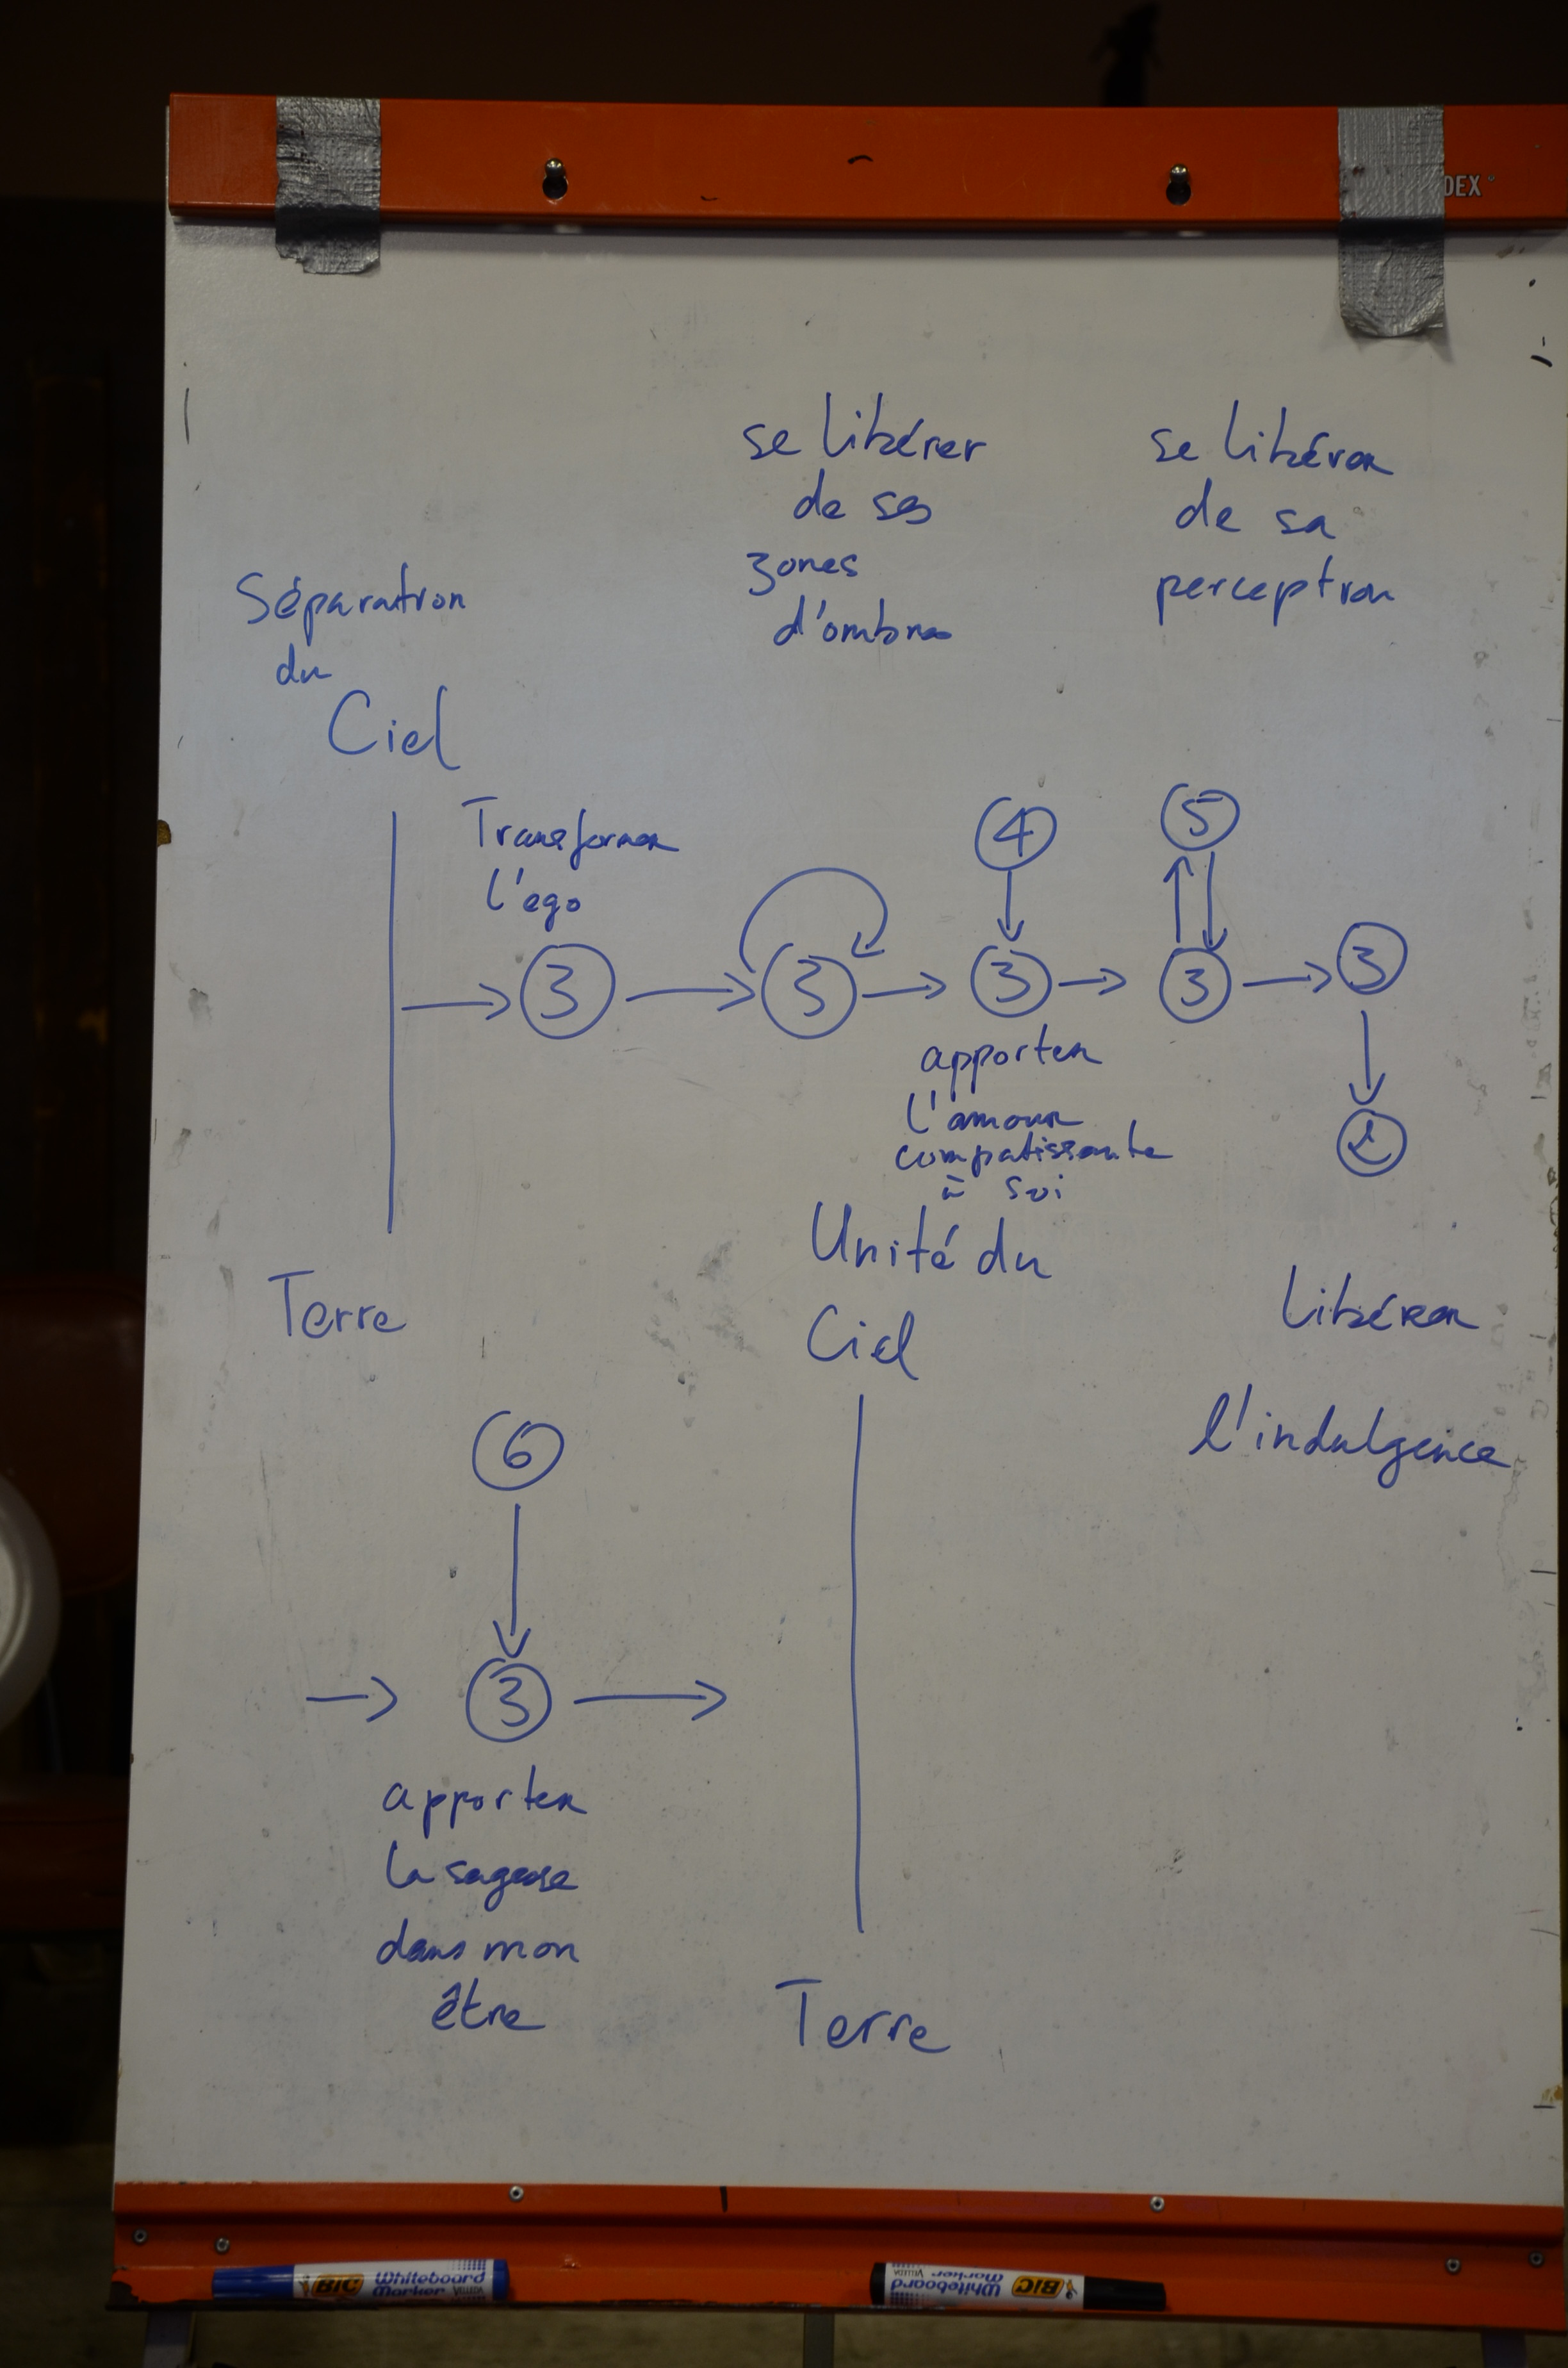 DEX
se libérer
de ses
zones
d'ombres
se libérer
de sa
perception
Séparation
du
Ciel
Transformer
l'ego
4
5
3
3
3
3
3
apporter
l'amour
compatissante
à soi
2
Terre
Unité du
Ciel
Libérer
l'indulgence
6
3
apporter
la sagesse
dans mon
être
Terre
BIC Whiteboard
Marker VELLEDA
BIC Whiteboard
Marker VELLEDA